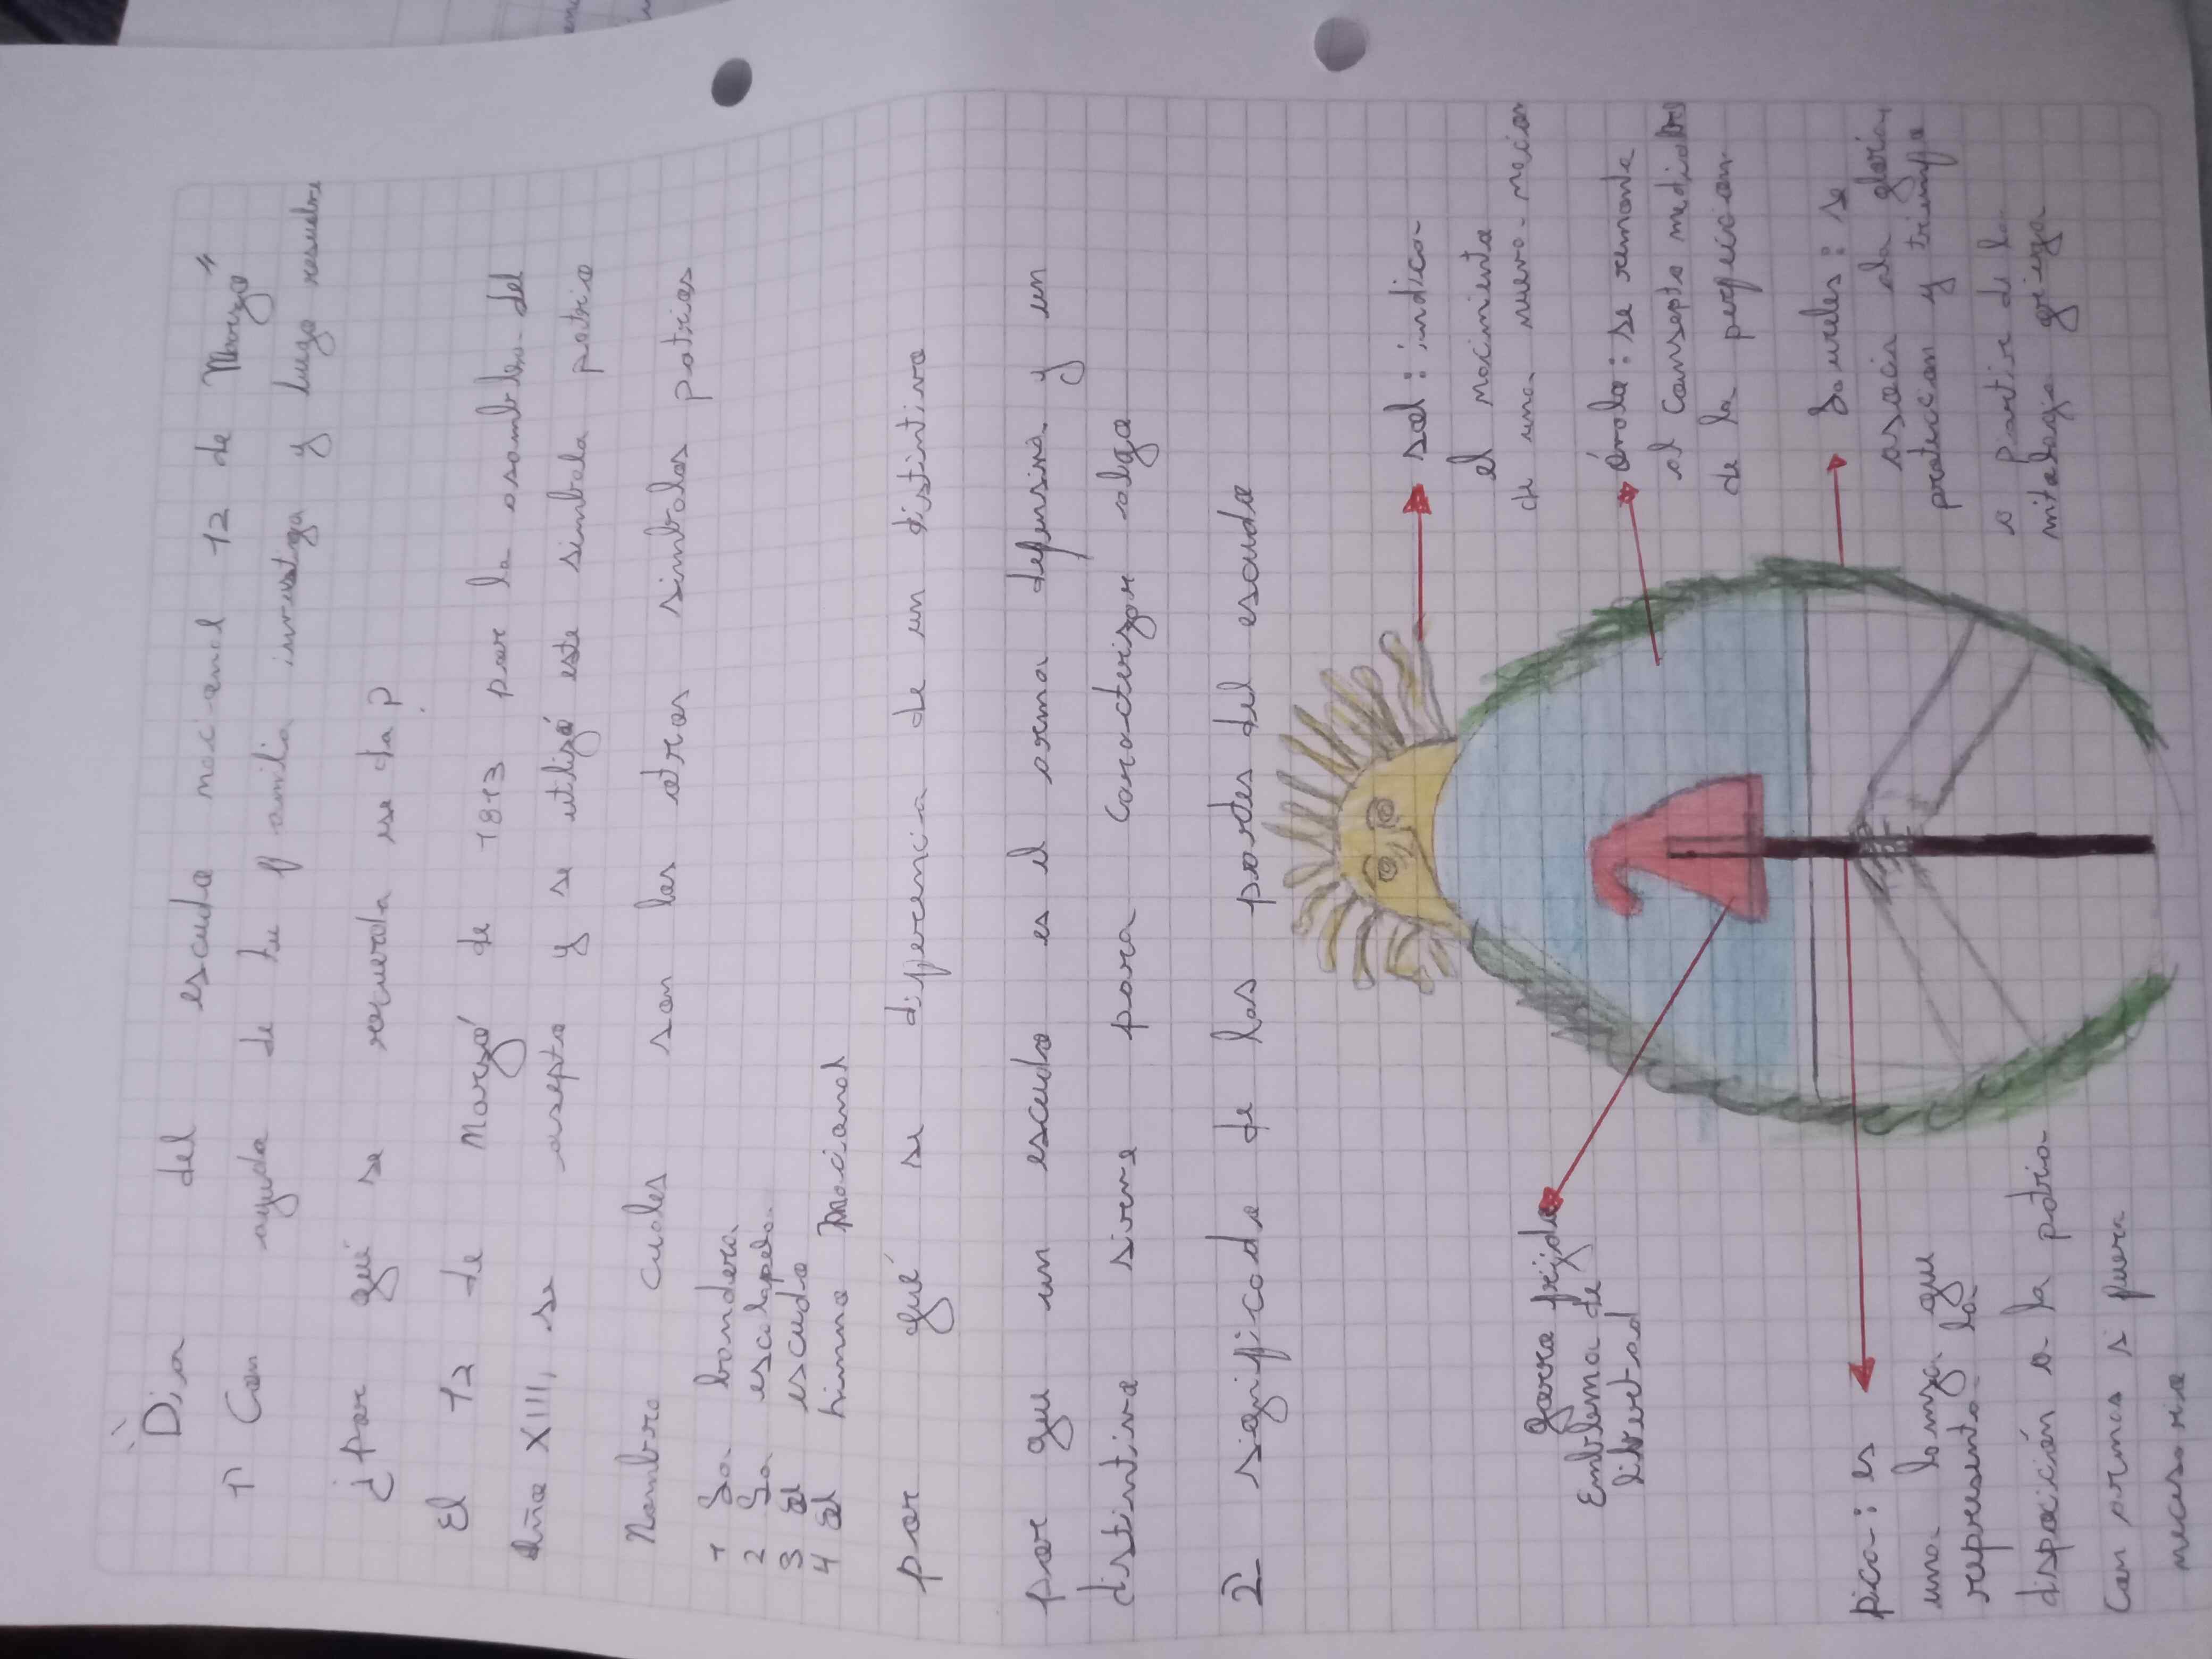 Dia del escudo nacional 12 de Marzo"
1) Con ayuda de tu familia investiga y luego resuelve
¿por qué se recuerda ese dia?
El 12 de Marzó de 1813 por la asamblea del
Año XIII, se asepto y se utilizó este simbolo patrio
Nombro cuales son los otros simbolos patrios
1 La bandera
2 La escalapela
3 El escudo
4 El himno Nacional
por qué se diferencia de un distintivo
por que un escudo es el arma defensiva y un
distintivo sirve para caracterizar algo
2) significado de las partes del escudo
sol: indica
el nacimiento
de una nueva nacion
óvolo: se remonta
al consepto
de la perfeicion
Laureles: se
asocia ala gloria,
protecion y triunfo
a partir de la
mitologia griega
gorro frijido
Emblema de
libertad
pica: es
una lanza que
representa la
disposición a la patria
Con armas si fuera
necesario